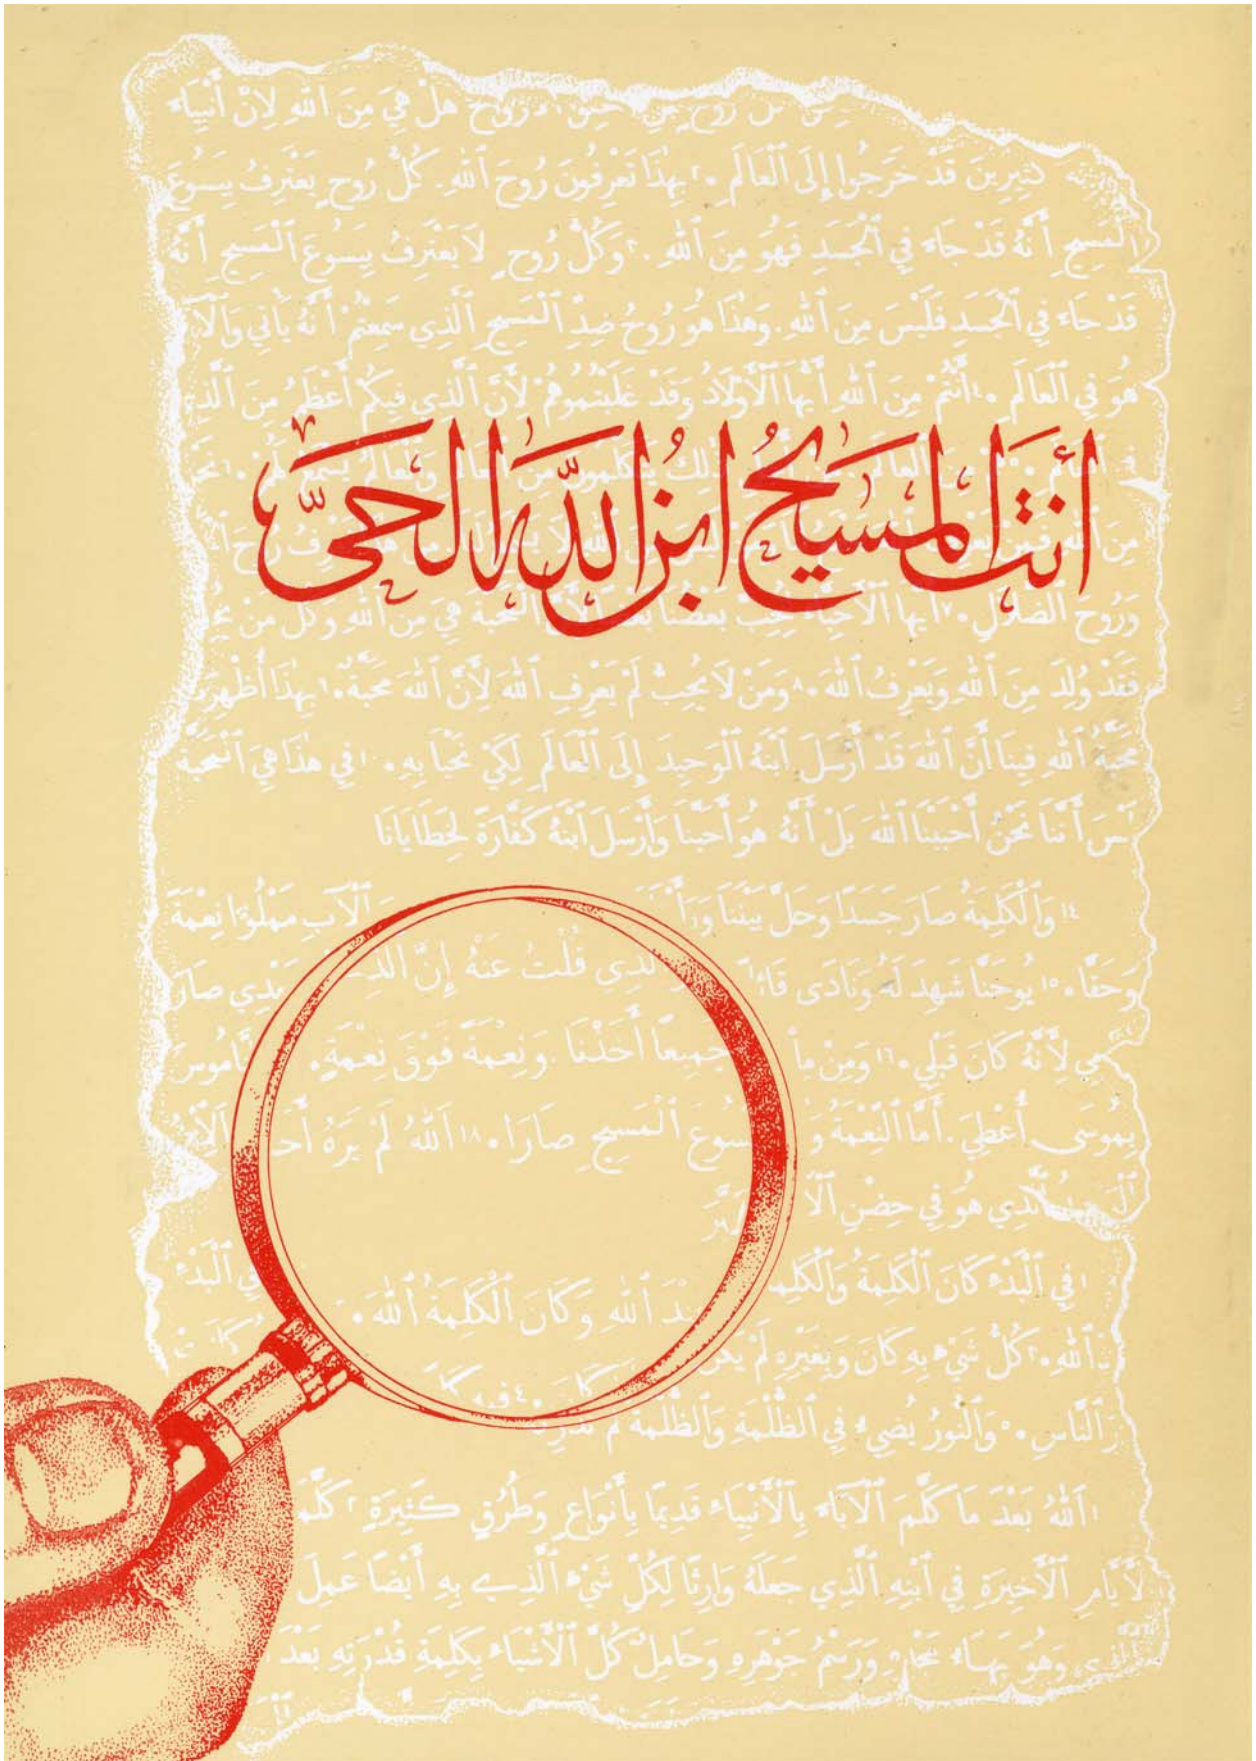 هَلْ هِيَ مِنَ ٱللهِ لِأَنَّ أَنْبِيَاءَ
كَثِيرِينَ قَدْ خَرَجُوا إِلَى ٱلْعَالَمِ ٠ ٢ بِهٰذَا تَعْرِفُونَ رُوحَ ٱللهِ. كُلُّ رُوحٍ يَعْتَرِفُ بِيَسُوعَ
ٱلْمَسِيحِ أَنَّهُ قَدْ جَاءَ فِي ٱلْجَسَدِ فَهُوَ مِنَ ٱللهِ. ٣ وَكُلُّ رُوحٍ لَا يَعْتَرِفُ بِيَسُوعَ ٱلْمَسِيحِ أَنَّهُ
قَدْ جَاءَ فِي ٱلْجَسَدِ فَلَيْسَ مِنَ ٱللهِ. وَهٰذَا هُوَ رُوحُ ضِدِّ ٱلْمَسِيحِ ٱلَّذِي سَمِعْتُمْ أَنَّهُ يَأْتِي وَٱلْآ
هُوَ فِي ٱلْعَالَمِ ٠ ٤ أَنْتُمْ مِنَ ٱللهِ أَيُّهَا ٱلْأَوْلَادُ وَقَدْ غَلَبْتُمُوهُمْ لِأَنَّ ٱلَّذِي فِيكُمْ أَعْظَمُ مِنَ ٱلَّذِي
أنتَ المسيحُ ابنُ اللّٰه الحيّ
وَرُوحَ ٱلضَّلَالِ ٠ ٧ أَيُّهَا ٱلْأَحِبَّاءُ ٱلْمَحَبَّةَ هِيَ مِنَ ٱللهِ وَكُلُّ مَنْ يُحِبُّ
فَقَدْ وُلِدَ مِنَ ٱللهِ وَيَعْرِفُ ٱللهَ ٠ ٨ وَمَنْ لَا يُحِبُّ لَمْ يَعْرِفِ ٱللهَ لِأَنَّ ٱللهَ مَحَبَّةٌ ٠ ٩ بِهٰذَا أُظْهِرَتْ
مَحَبَّةُ ٱللهِ فِينَا أَنَّ ٱللهَ قَدْ أَرْسَلَ ٱبْنَهُ ٱلْوَحِيدَ إِلَى ٱلْعَالَمِ لِكَيْ نَحْيَا بِهِ ٠ ١٠ فِي هٰذَا هِيَ ٱلْمَحَبَّةُ
لَيْسَ أَنَّنَا نَحْنُ أَحْبَبْنَا ٱللهَ بَلْ أَنَّهُ هُوَ أَحَبَّنَا وَأَرْسَلَ ٱبْنَهُ كَفَّارَةً لِخَطَايَانَا
١٤ وَٱلْكَلِمَةُ صَارَ جَسَدًا وَحَلَّ بَيْنَنَا وَرَأَ ٱلْآبِ مَمْلُوءًا نِعْمَةً
وَحَقًّا ٠ ١٥ يُوحَنَّا شَهِدَ لَهُ وَنَادَى قَاءِ ٱلَّذِي قُلْتُ عَنْهُ إِنَّ ٱلَّذِ بَعْدِي صَارَ
مِي لِأَنَّهُ كَانَ قَبْلِي ٠ ١٦ وَمِنْ مِلْ جَمِيعًا أَخَذْنَا. وَنِعْمَةً فَوْقَ نِعْمَةٍ. نَّامُوسَ
بِمُوسَى أُعْطِيَ. أَمَّا ٱلنِّعْمَةُ وَ سُوعَ ٱلْمَسِيحِ صَارَا ٠ ١٨ ٱَللهُ لَمْ يَرَهُ أَحَ ٱلْآبْ
ٱلَّذِي هُوَ فِي حِضْنِ ٱلْآ
١ فِي ٱلْبَدْءِ كَانَ ٱلْكَلِمَةُ وَٱلْكَلِمَ نْدَ ٱللهِ وَكَانَ ٱلْكَلِمَةُ ٱللهَ ٠ فِي ٱلْبَدْءِ
ٱللهِ ٠ ٣ كُلُّ شَيْءٍ بِهِ كَانَ وَبِغَيْرِهِ لَمْ يَكُنْ
ٱلنَّاسِ ٠ ٥ وَٱلنُّورُ يُضِيءُ فِي ٱلظُّلْمَةِ وَٱلظُّلْمَةُ لَمْ تُدْرِ
١ ٱَللهُ بَعْدَ مَا كَلَّمَ ٱلْآبَاءَ بِٱلْأَنْبِيَاءِ قَدِيمًا بِأَنْوَاعٍ وَطُرُقٍ كَثِيرَةٍ ٢ كَلَّمَ
لْأَيَّامِ ٱلْأَخِيرَةِ فِي ٱبْنِهِ ٱلَّذِي جَعَلَهُ وَارِثًا لِكُلِّ شَيْءٍ ٱلَّذِي بِهِ أَيْضًا عَمِلَ
وَهُوَ بَهَاءُ مَجْدِهِ وَرَسْمُ جَوْهَرِهِ وَحَامِلٌ كُلَّ ٱلْأَشْيَاءِ بِكَلِمَةِ قُدْرَتِهِ بَعْدَ